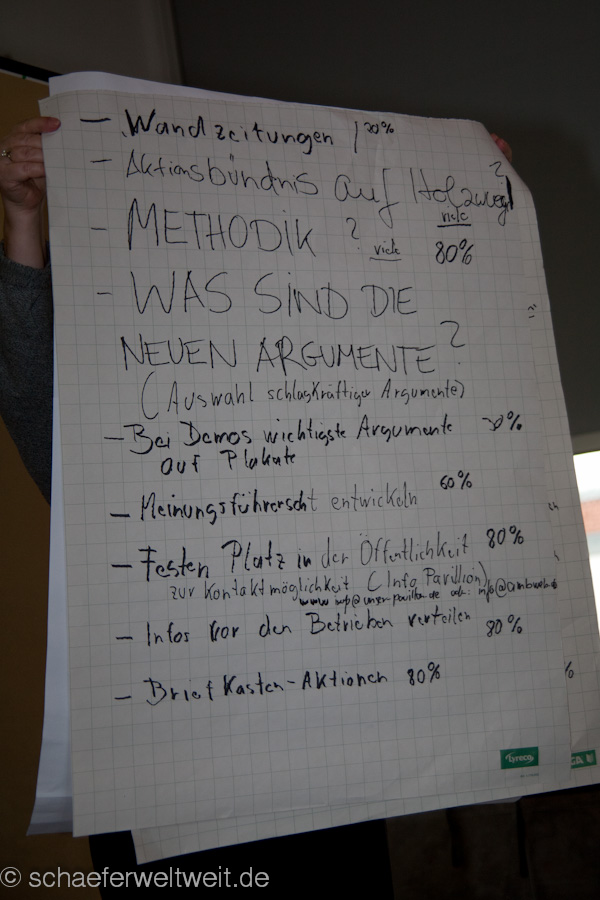 - Wandzeitungen / 20%
- Aktionsbündnis auf Holzweg?
viele
- METHODIK? viele 80%
- WAS SIND DIE
NEUEN ARGUMENTE?
(Auswahl schlagkräftiger Argumente)
- Bei Demos wichtigste Argumente
auf Plakate
- Meinungsführerscht entwickeln 60%
- Festen Platz in der Öffentlichkeit 80%
zur Kontaktmöglichkeit (Info Pavillion)
- Infos vor den Betrieben verteilen 80%
- Briefkasten-Aktionen 80%
%
Lyreco
© schaeferweltweit.de